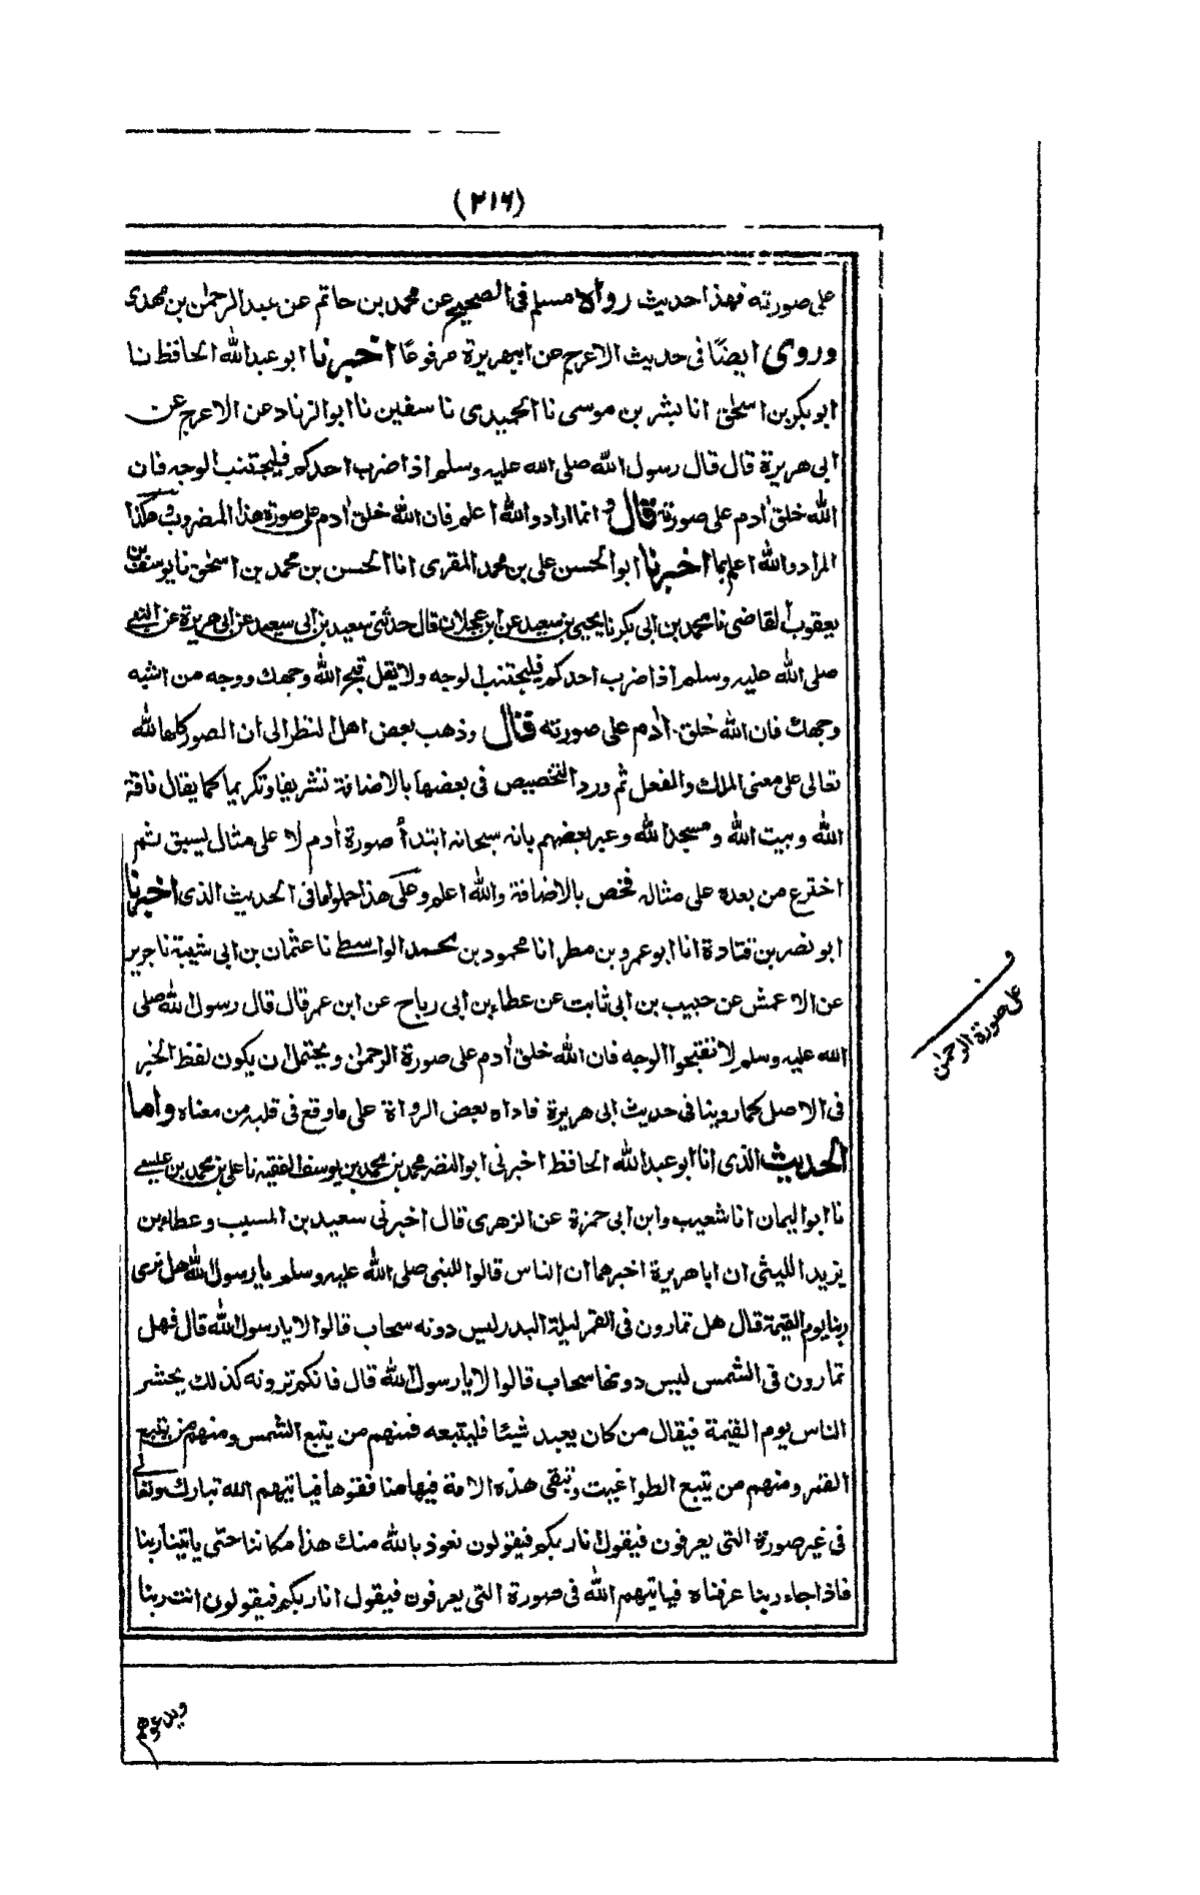 (٢١٦)
على صورته فهذا حديث رواه مسلم فى الصحيح عن محمد بن حاتم عن عبد الرحمٰن بن مهدى
وروى ايضًا فى حديث الاعرج عن ابيهريرة مرفوعًا اخبرنا ابو عبد الله الحافظ نا
ابو بكر بن اسحٰق انا بشر بن موسى نا الحميدى نا سفين نا ابو الزناد عن الاعرج عن
ابى هريرة قال قال رسول الله صلى الله عليه وسلم اذا ضرب احدكم فليجتنب الوجه فان
الله خلق اٰدم على صورته قال و انما اراد والله اعلم فان الله خلق اٰدم على صورة هذا المضروب وهكذا
المراد والله اعلم بما اخبرنا ابو الحسن على بن محمد المقرى انا الحسن بن محمد بن اسحٰق نا يوسف بن
يعقوب القاضى نا محمد بن ابى بكر نا يحيى بن سعيد عن ابن عجلان قال حدثنى سعيد بن ابى سعيد عن ابى هريرة عن النبى
صلى الله عليه وسلم اذا ضرب احدكم فليجتنب الوجه ولا يقل قبح الله وجهك ووجه من اشبه
وجهك فان الله خلق اٰدم على صورته قال وذهب بعض اهل النظر الى ان الصور كلها لله
تعالى على معنى الملك والفعل ثم ورد التخصيص فى بعضها بالاضافة تشريفا وتكريما كما يقال ناقة
الله وبيت الله ومسجد الله وعبر بعضهم بانه سبحانه ابتدأ صورة اٰدم لا على مثال يسبق ثم
اخترع من بعده على مثاله فخص بالاضافة والله اعلم وعلى هذا حملوا ما فى الحديث الذى اخبرنا
ابو نصر بن قتادة انا ابو عمرو بن مطر انا محمود بن محمد الواسطى نا عثمان بن ابى شيبة نا جرير
عن الاعمش عن حبيب بن ابى ثابت عن عطاء بن ابى رباح عن ابن عمر قال قال رسول الله صلى
الله عليه وسلم لا تقبحوا الوجه فان الله خلق اٰدم على صورة الرحمٰن ويحتمل ان يكون لفظ الخبر
فى الاصل كما روينا فى حديث ابى هريرة فاداه بعض الرواة على ما وقع فى قلبه من معناه واما
الحديث الذى انا ابو عبد الله الحافظ اخبرنى ابو النضر محمد بن محمد بن يوسف الفقيه نا على بن محمد بن عيسى
نا ابو اليمان انا شعيب وابن ابى حمزة عن الزهرى قال اخبرنى سعيد بن المسيب وعطاء بن
يزيد الليثى ان ابا هريرة اخبرهما ان الناس قالوا للنبى صلى الله عليه وسلم يا رسول الله هل نرى
ربنا يوم القيمة قال هل تمارون فى القمر ليلة البدر ليس دونه سحاب قالوا لا يا رسول الله قال فهل
تمارون فى الشمس ليس دونها سحاب قالوا لا يا رسول الله قال فانكم ترونه كذلك يحشر
الناس يوم القيٰمة فيقال من كان يعبد شيئا فليتبعه فمنهم من يتبع الشمس ومنهم من يتبع
القمر ومنهم من يتبع الطواغيت وتبقى هذه الامة فيها منافقوها فياتيهم الله تبارك وتعالى
فى غير صورة التى يعرفون فيقول انا ربكم فيقولون نعوذ بالله منك هذا مكاننا حتى ياتينا ربنا
فاذا جاء ربنا عرفناه فياتيهم الله فى صورة التى يعرفون فيقول انا ربكم فيقولون انت ربنا
على صورة الرحمٰن